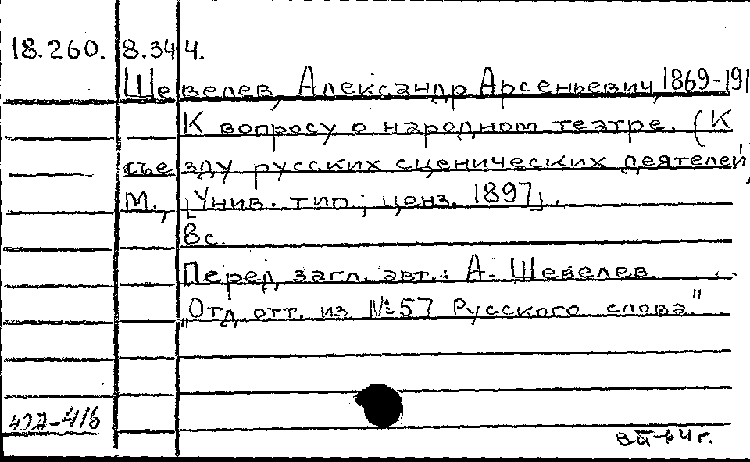 18.260. 8.344.
Шевелев, Александр Арсеньевич, 1869-191
К вопросу о народном театре. (К
съезду русских сценических деятелей)
М., [Унив. тип.; ценз. 1897].
8с.
Перед загл. авт.: А. Шевелев
"Отд. отт. из №57 Русского слова."
427-416